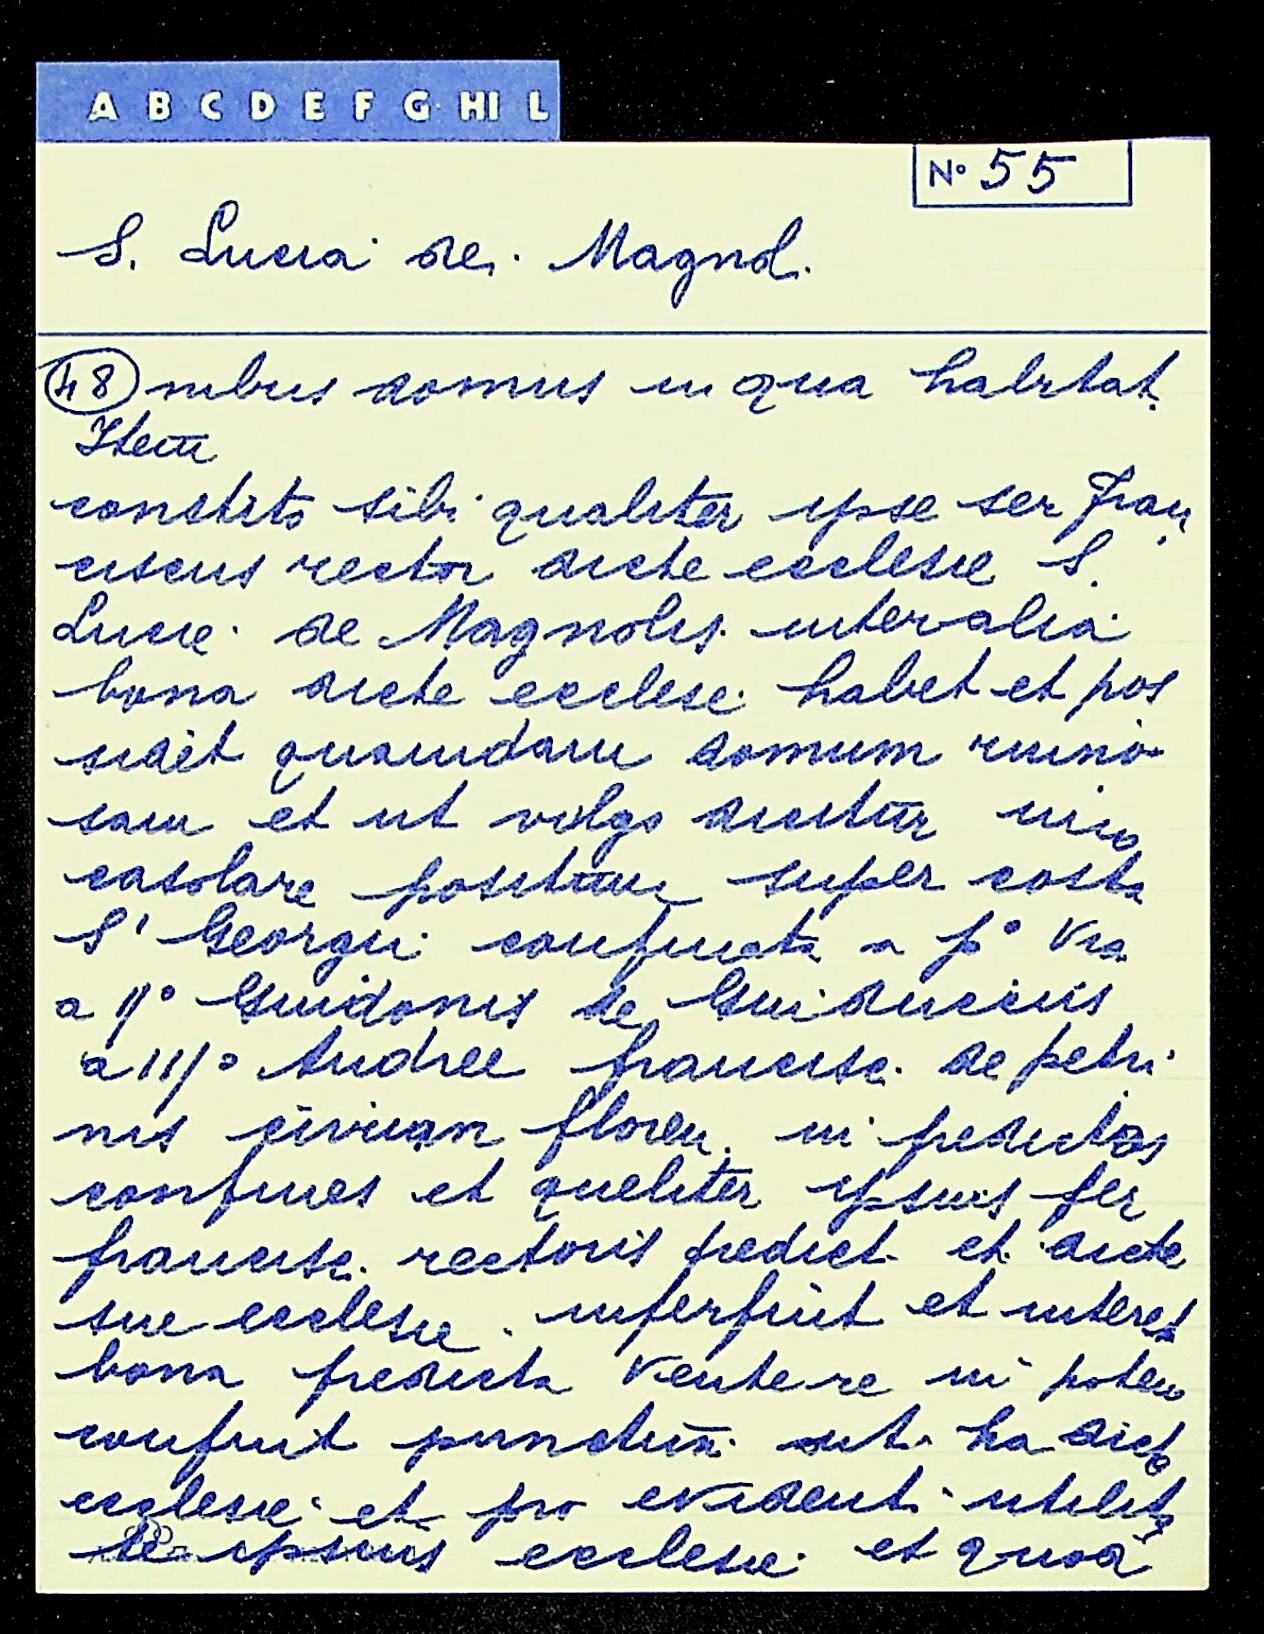 A B C D E F G HI L
N° 55
S. Lucia de. Magnol.
48 nibus domus in qua habitat.
Item
constito sibi qualiter ipse ser Fran
ciscus rector dicte ecclesie S.
Lucie de Magnolis inter alia
bona dicte ecclese habet et pos
sidet quamdam domum ruino
sam et ut volgo dicitur
casolare positum super costa
S' Georgii confinata a p° via
a II° Guidonis de Guiduccis
a III° Andree francisc. de petri
nis civium floren. in predictos
confines et queliter ipsius ser
francisc. rectoris predict. et dicte
sue ecclesie. interfuit et interest
bona predicta vendere in
ha dicte
ecclesie et pro evident. utilita
te ipsius ecclesie. et quod